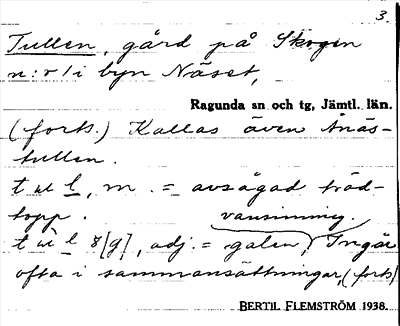 3.
Tullen, gård på Skogen
n:r 1 i byn Näset,
Ragunda sn och tg, Jämtl. län.
(forts.) Kallas även Ånäs-
tullen.
t u l, m. = avsågad träd-
topp. vansinnig.
t u l [g], adj. = galen, Ingår
ofta i sammansättningar, (forts)
BERTIL FLEMSTRÖM 1938.